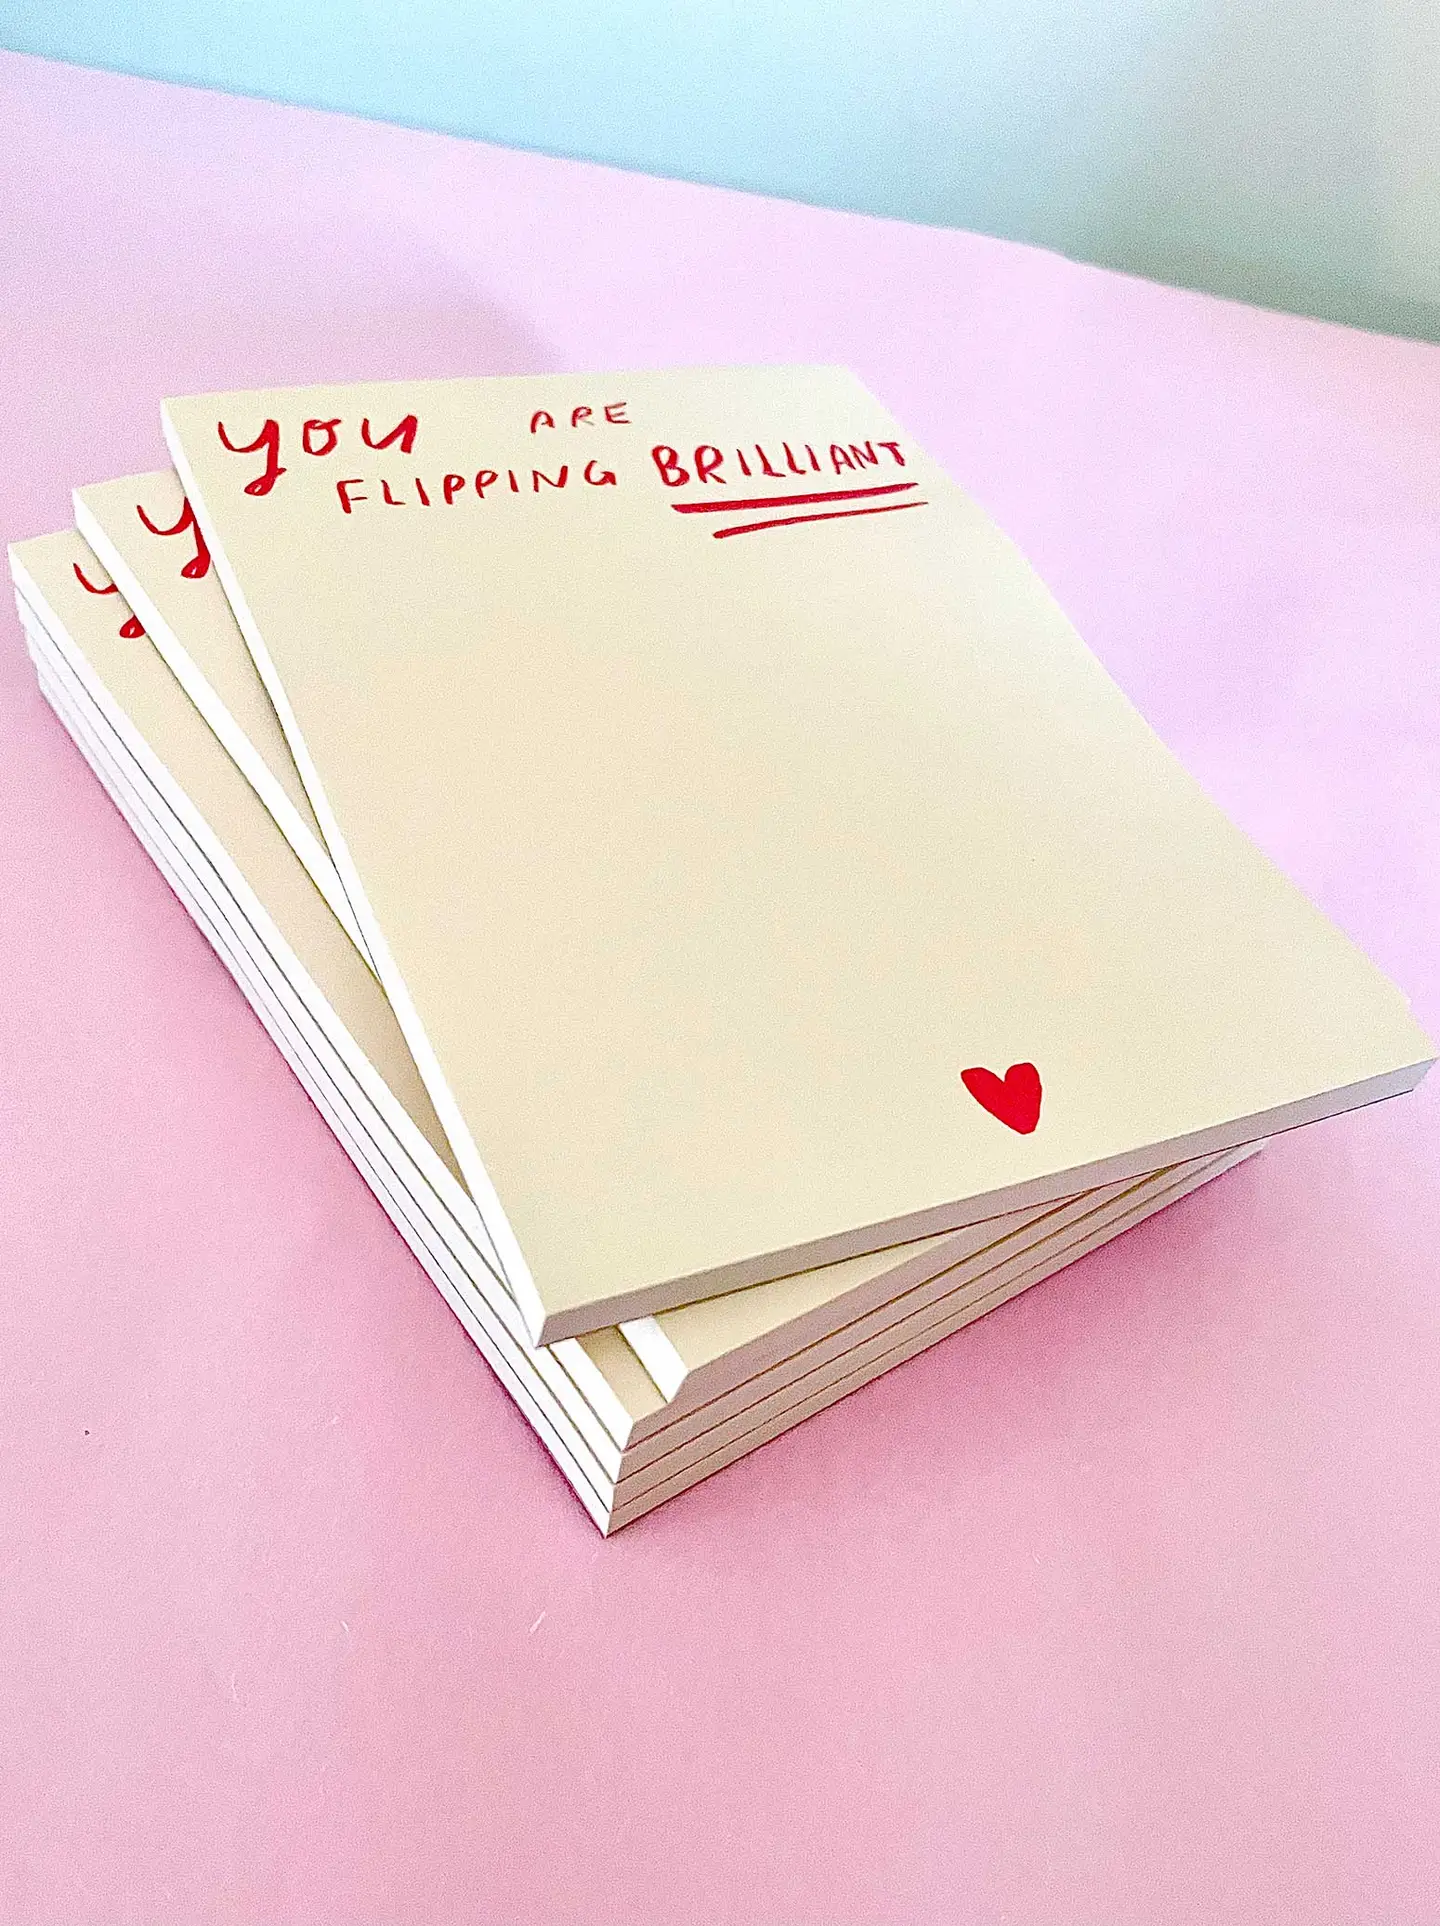 you ARE
FLIPPING BRILLIANT
y
y